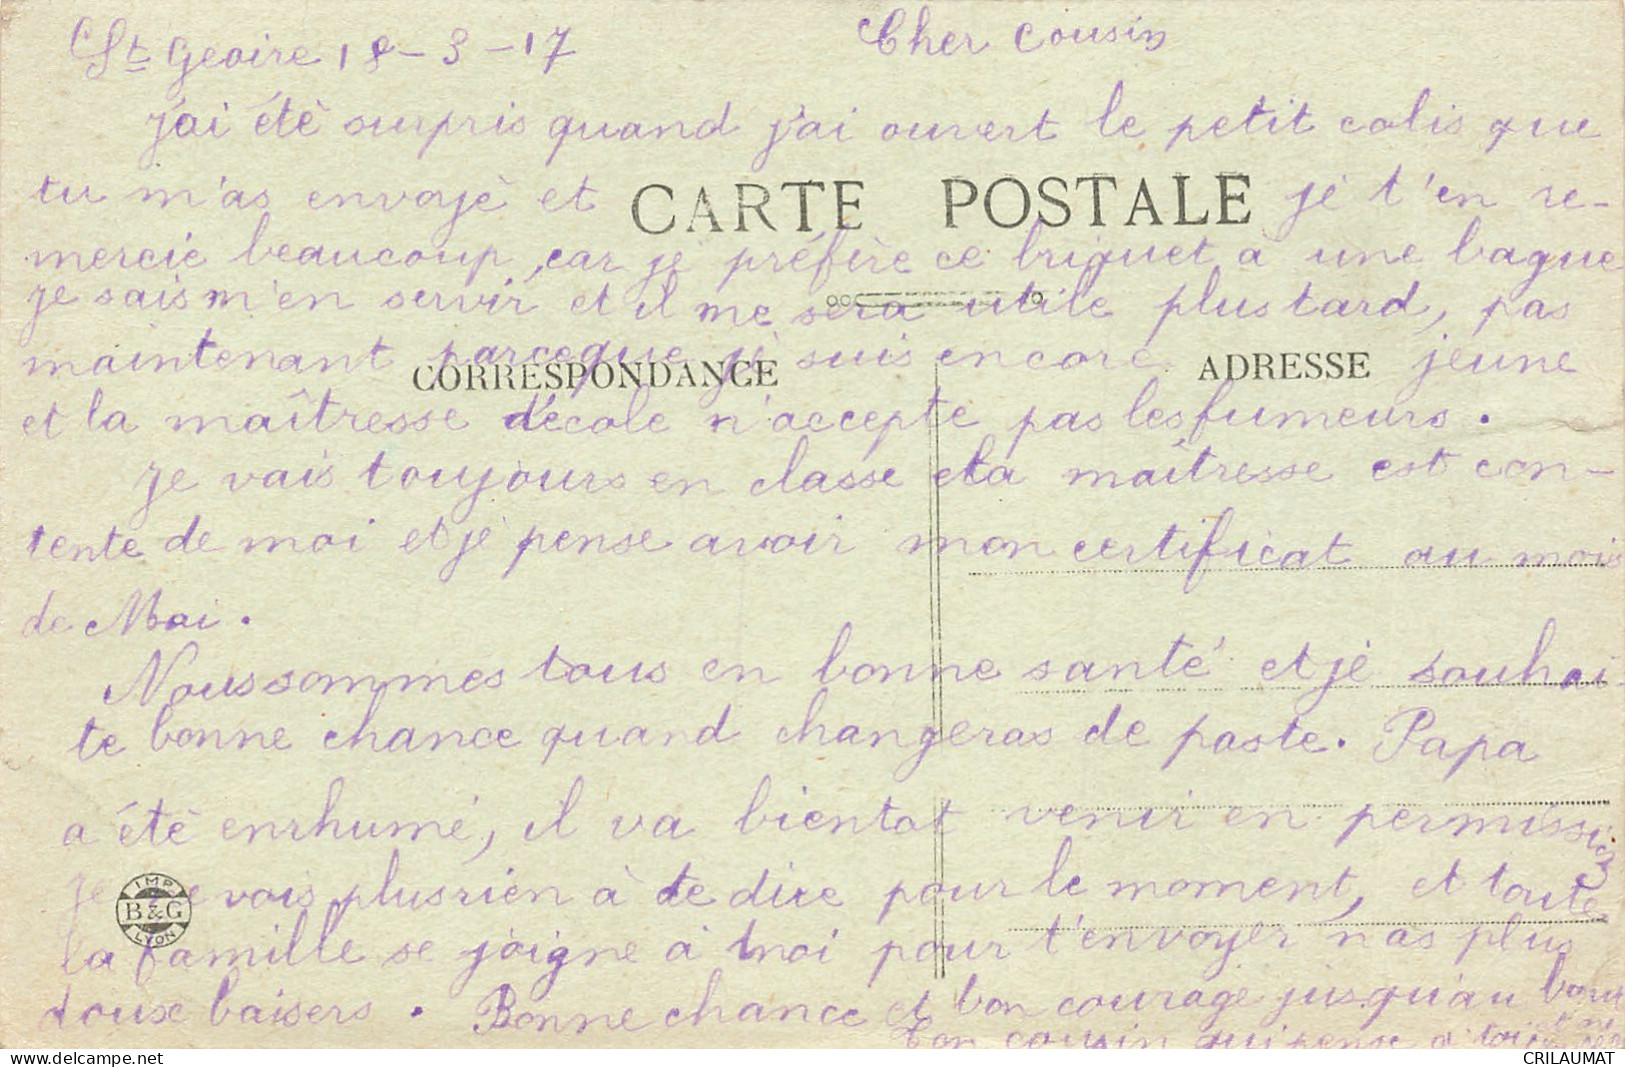 St Geoire 18-3-17 Cher Cousin
j'ai été surpris quand j'ai ouvert le petit colis que
tu m'as envoyé et je t'en re-
CARTE POSTALE
mercie beaucoup, car je préfère ce briquet à une bague
je sais m'en servir et il me sera utile plus tard, pas
maintenant parceque je suis encore jeune
CORRESPONDANCE ADRESSE
et la maîtresse d'école n'accepte pas les fumeurs.
Je vais toujours en classe et la maîtresse est con-
tente de moi et je pense avoir mon certificat au mois
de Mai.
Nous sommes tous en bonne santé et je souhai-
te bonne chance quand changeras de poste. Papa
a été enrhumé, il va bientot venir en permission
je vois plus rien à te dire pour le moment, et toute
IMP. B & G LYON
la famille se joigne à moi pour t'envoyer nos plus
doux baisers. Bonne chance et bon courage jusqu'au bout
Ton cousin qui pense à toi
CRILAUMAT